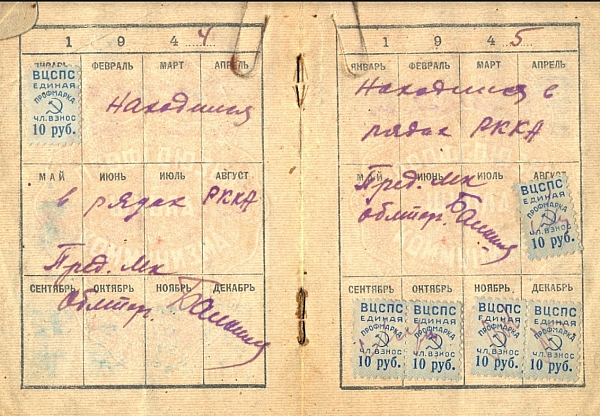 1 9 4 4
ЯНВАРЬ ФЕВРАЛЬ МАРТ АПРЕЛЬ
ВЦСПС
ЕДИНАЯ
ПРОФМАРКА
ЧЛ. ВЗНОС
10 руб.
Находился
МАЙ ИЮНЬ ИЮЛЬ АВГУСТ
в рядах РККА
Пред. МК
СЕНТЯБРЬ ОКТЯБРЬ НОЯБРЬ ДЕКАБРЬ
1 9 4 5
ЯНВАРЬ ФЕВРАЛЬ МАРТ АПРЕЛЬ
Находился в
рядах РККА
МАЙ ИЮНЬ ИЮЛЬ АВГУСТ
Пред. МК
ВЦСПС
ЕДИНАЯ
ПРОФМАРКА
ЧЛ. ВЗНОС
10 руб.
СЕНТЯБРЬ ОКТЯБРЬ НОЯБРЬ ДЕКАБРЬ
ВЦСПС ВЦСПС ВЦСПС ВЦСПС
ЕДИНАЯ ЕДИНАЯ ЕДИНАЯ ЕДИНАЯ
ПРОФМАРКА ПРОФМАРКА ПРОФМАРКА ПРОФМАРКА
ЧЛ. ВЗНОС ЧЛ. ВЗНОС ЧЛ. ВЗНОС ЧЛ. ВЗНОС
10 руб. 10 руб. 10 руб. 10 руб.